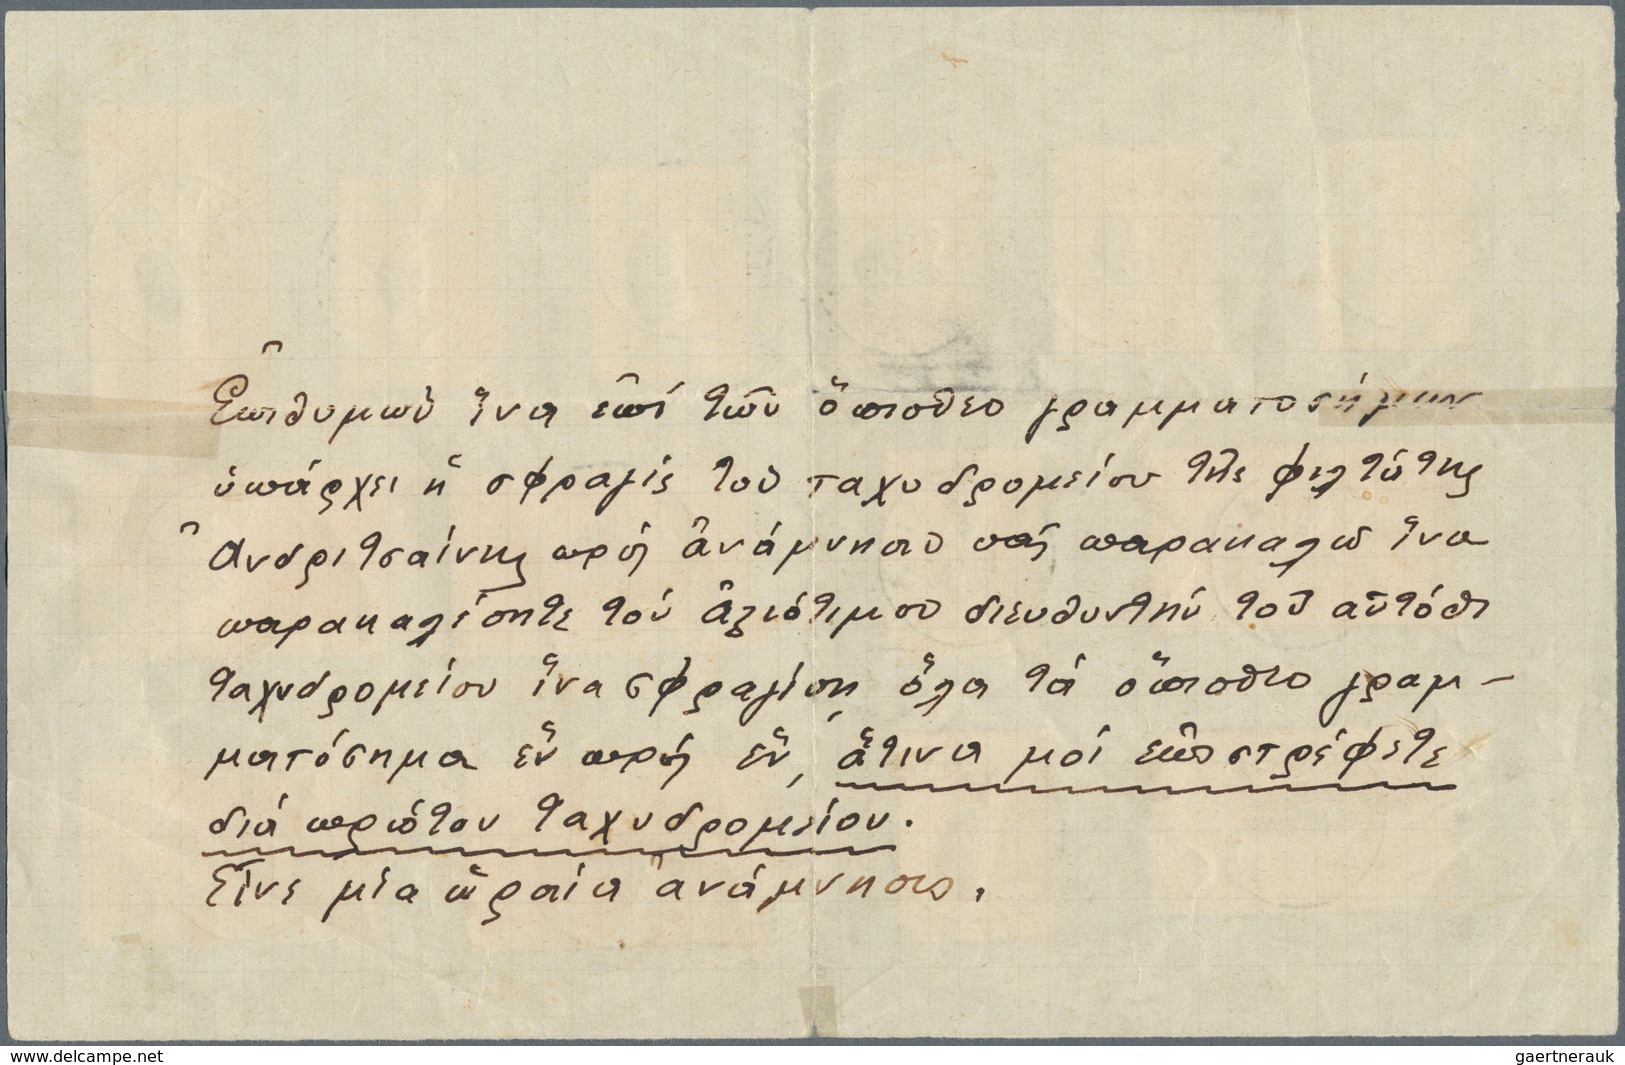 Ἐπιθυμῶν ἵνα ἐπί τῶν ὄπισθεν γραμματοσήμων
ὑπάρχει ἡ σφραγίς τοῦ ταχυδρομείου τῆς φιλτάτης
Ἀνδριτσαίνης πρός ἀνάμνησιν σᾶς παρακαλῶ ἵνα
παρακαλέσητε τόν ἀξιότιμον διευθυντήν τοῦ αὐτόθι
ταχυδρομείου ἵνα σφραγίσῃ ὅλα τά ὄπισθεν γραμ-
ματόσημα ἕν πρός ἕν, ἅτινα μοί ἐπιστρέφετε
διά πρώτου ταχυδρομείου.
Εἶνε μία ὡραία ἀνάμνησις.
www.delcampe.net
gaertnerauk